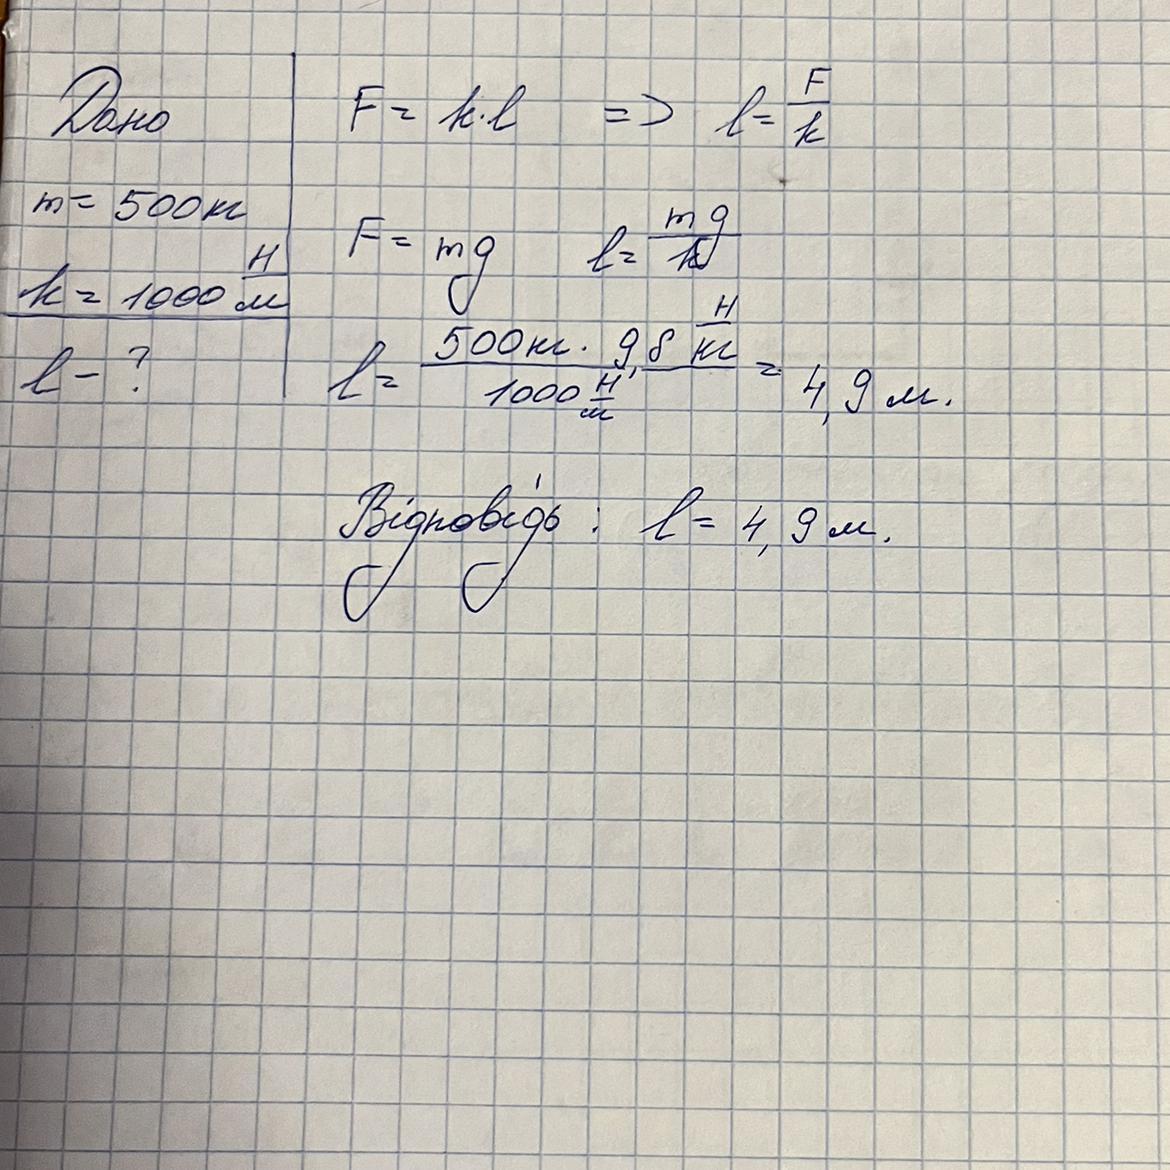 Дано
m = 500 кг
k = 1000 Н/м
l - ?
F = k·l => l = F/k
F = mg l = mg/k
l = 500 кг · 9,8 Н/кг / 1000 Н/м = 4,9 м.
Відповідь : l = 4,9 м.